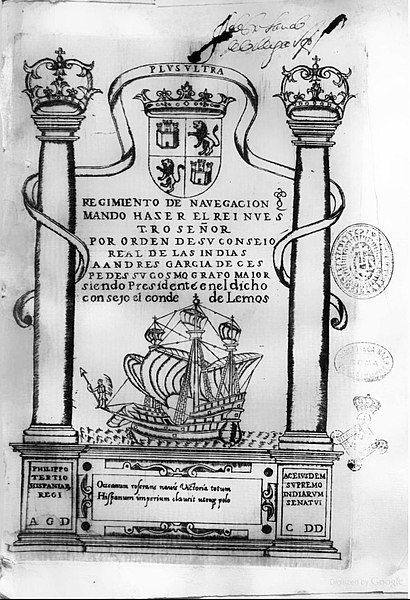 PLVS VLTRA
REGIMIENTO DE NAVEGACION
MANDO HASER EL REI NVES
TRO SEÑOR
POR ORDEN DE SV CONSEIO
REAL DE LAS INDIAS
A ANDRES GARCIA DE CES
PEDES SV COSMOGRAFO MAIOR
siendo Presidente en el dicho
consejo el conde de Lemos
PHILIPPO
TERTIO
HISPANIAR
REGI
A G D
Oceanum reserans navis Victoria totum
Hispanum imperium clausit utroque polo
AC EIVSDEM
SVPREMO
INDIARVM
SENATVI
C DD
Digitized by Google